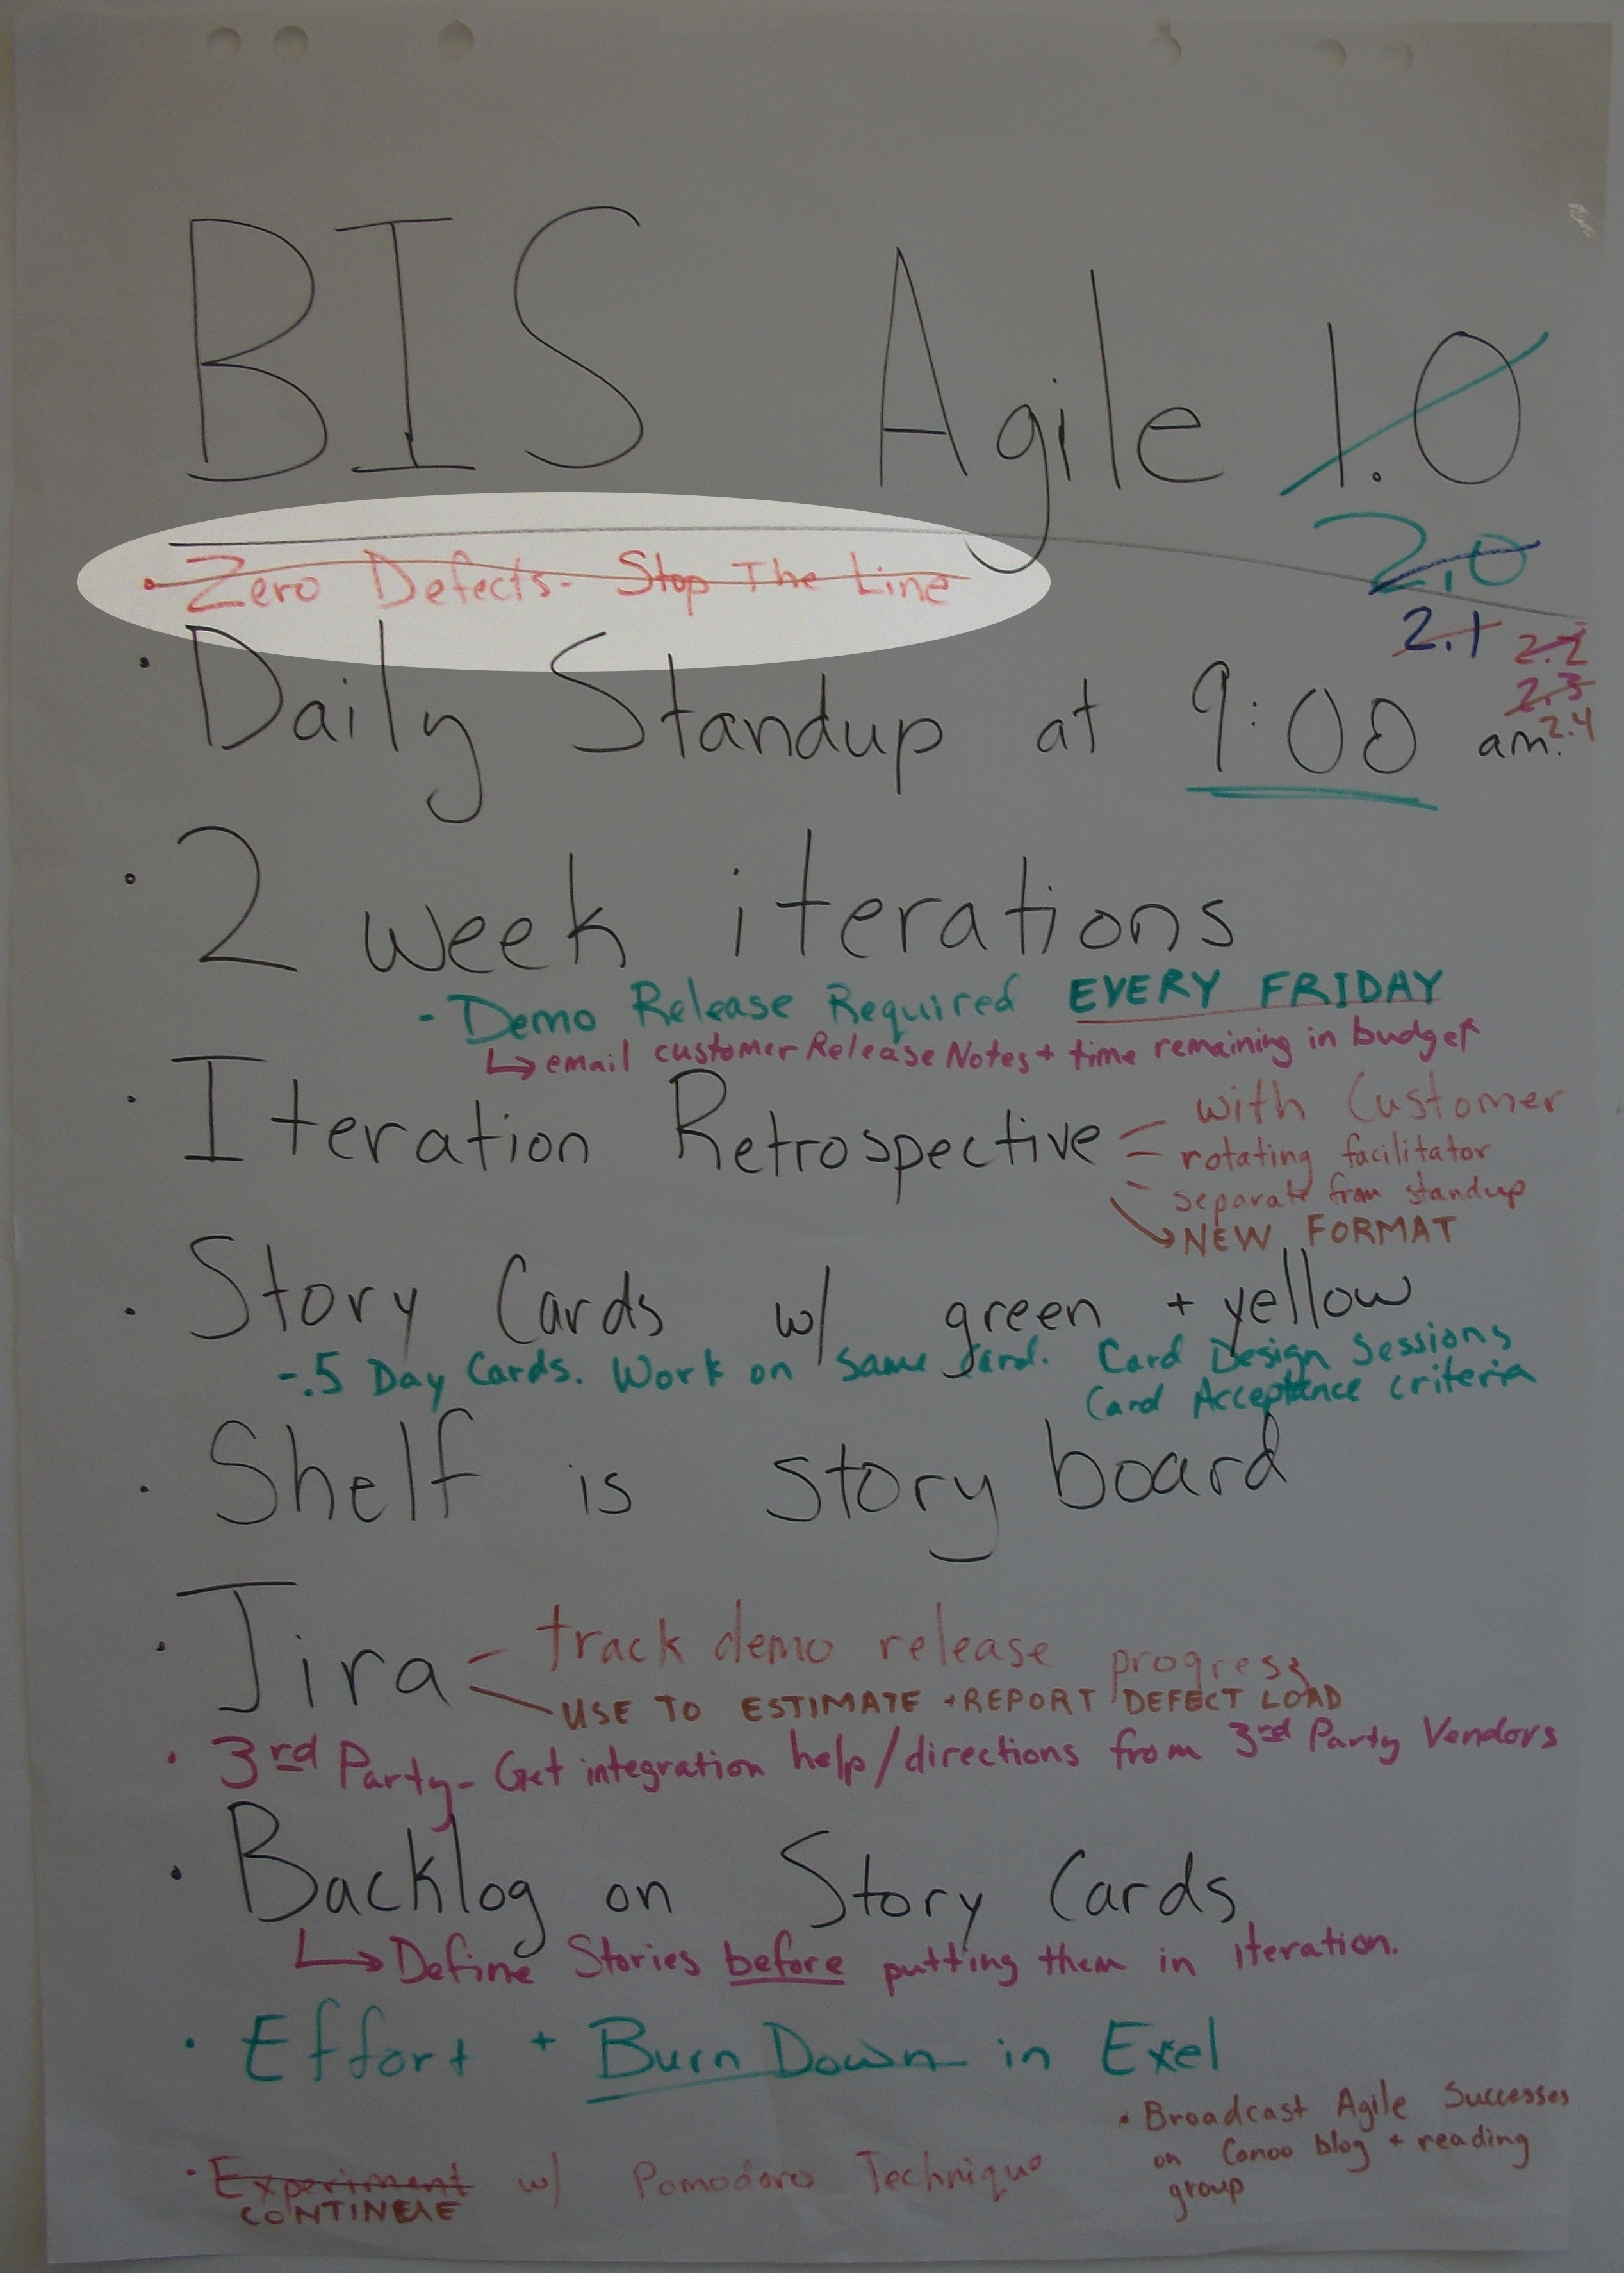 BIS Agile 1.0
2.0
2.1 2.2
2.3
2.4
• Zero Defects - Stop The Line
• Daily Standup at 9:00 am.
• 2 week iterations
- Demo Release Required EVERY FRIDAY
↳ email customer Release Notes + time remaining in budget
• Iteration Retrospective - with Customer
- rotating facilitator
- separate from standup
↘ NEW FORMAT
• Story Cards w/ green + yellow
- .5 Day Cards. Work on same card. Card Design Sessions
Card Acceptance criteria
• Shelf is story board
• Jira - track demo release progress
USE TO ESTIMATE + REPORT DEFECT LOAD
• 3rd Party - Get integration help/directions from 3rd Party Vendors
• Backlog on Story Cards
↳ Define Stories before putting them in iteration.
• Effort + Burn Down in Exel
• Experiment w/ Pomodoro Technique
CONTINUE
• Broadcast Agile Successes
on Canoo blog + reading
group